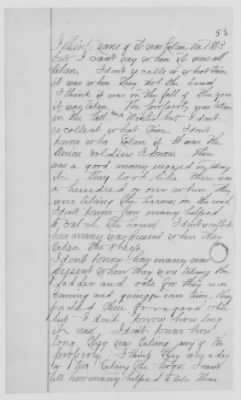 53
I think some of it was taken in 1863
but I cant say when it was all
taken. I dont recollect what time
it was when they got the horses
I think it was in the fall of the year
it was taken. The property was taken
in the fall and Winter but I dont
recollect what time. I dont
know who taken it. It was the
Union soldiers I know. There
was a good many engaged in taking
it. They look like there was
a hundred or over when they
were taking the horses in the road.
I dont know how many helped
to catch the horses. I dont recollect
how many was present when they
taken the sheep.
I dont know how many was
present when they were taking the
fodder and oats for they were
coming and going from time, they
for a good while
but I dont know how long
it was, I dont know how
long they was taking any of the
property. I think they was a day
or two taking the hogs. I cant
tell how many helped to take them